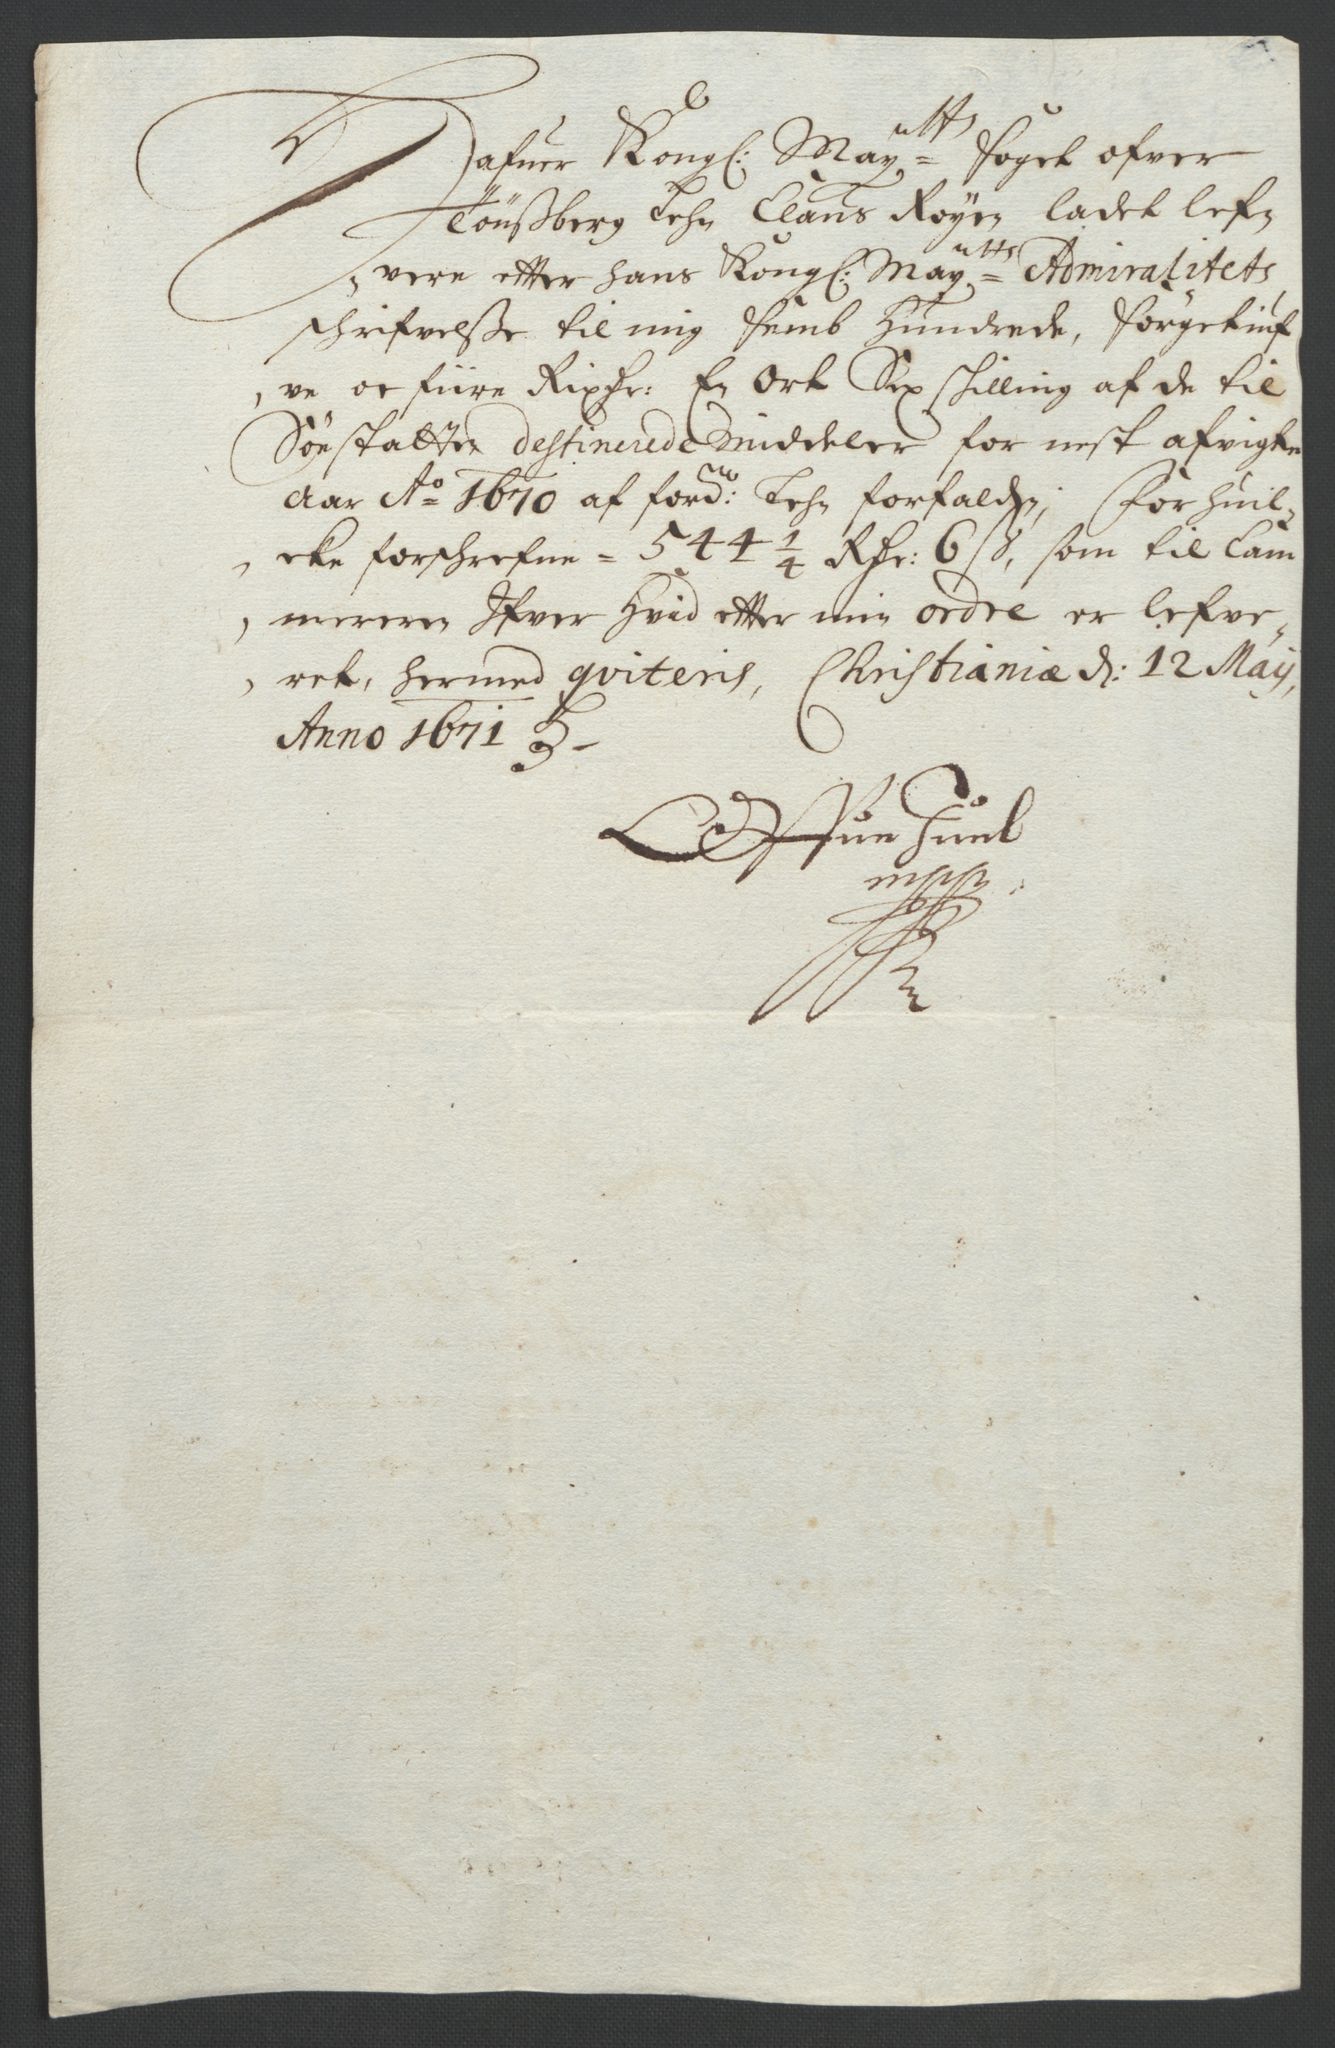 Hafuer Kongl: Maytts foget ofver
Tönßberg Lehn Claus Röyen ladet lef-
vere etter hans Kongl: Maytts Admiralitets
schrifvelße til mig femb Hundrede, förgetiuf-
ve oc fiire Rixdr: En Ort Sex skilling af de til
Söestatten destinerede Middeler for nest afvigte
Aar Ao 1670 af fordne: Lehn forfalden; For huil-
cke forschrefne = 544 1/4 Rdr: 6 ß, som til Cam-
mereren Ifver Hvid etter min ordre er lefve-
ret, hermed qviteris, Christianiæ d: 12 Maij,
Anno 1671
mpp